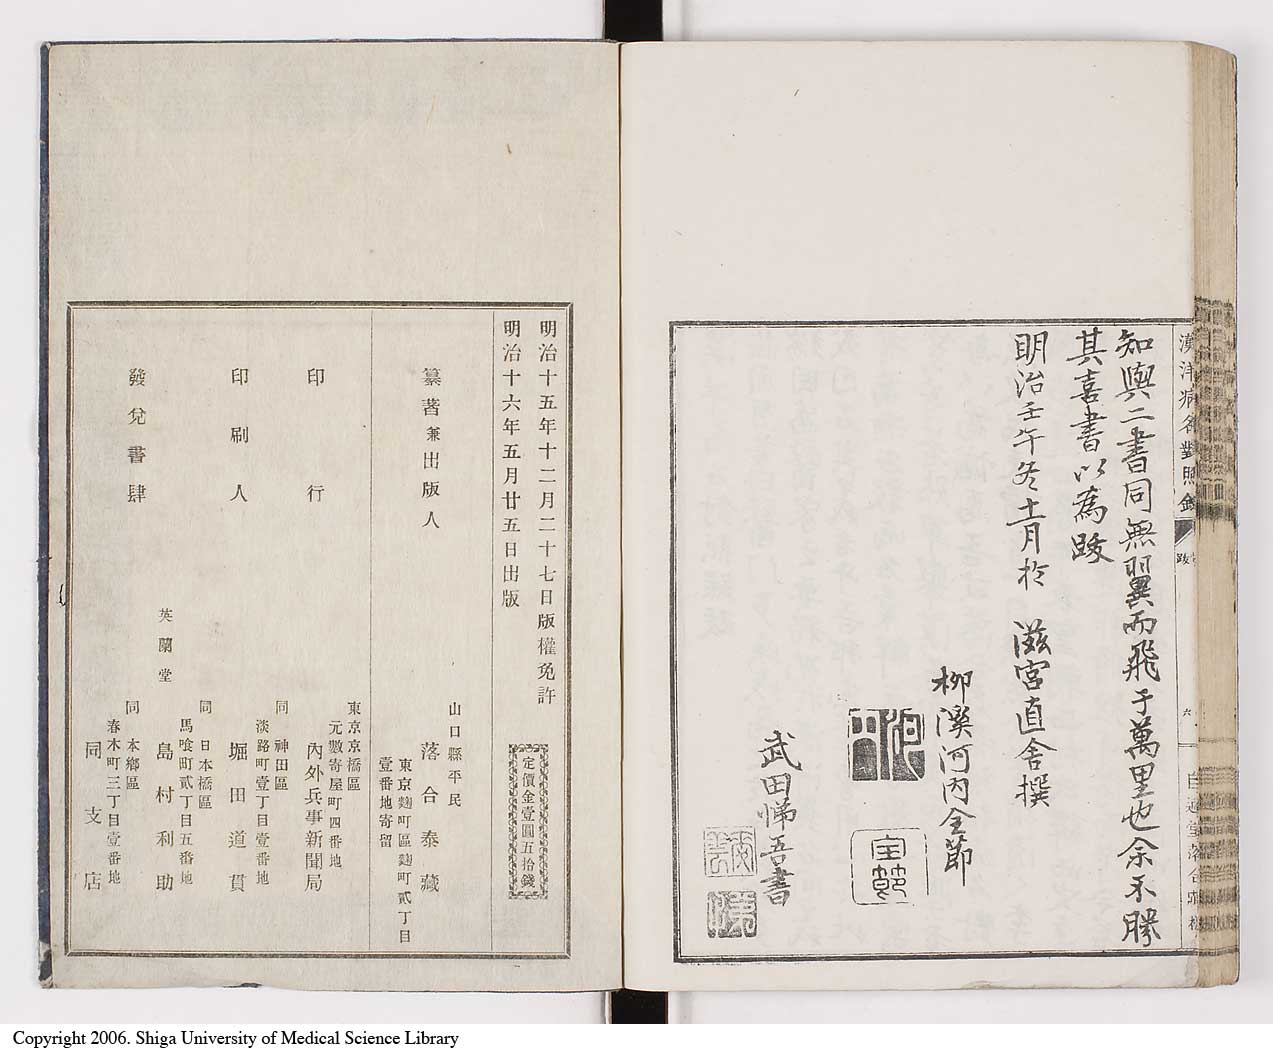 漢洋病名對照録
跋
六
知與二書同無翼而飛于萬里也余不勝
其喜書以為跋
明治壬午冬十一月於 滋宮直舍撰
柳溪河內全節
武田悌吾書
明治十五年十二月二十七日版權免許
明治十六年五月廿五日出版
定價金壹圓五拾錢
纂著兼出版人
山口縣平民
落合泰藏
東京麹町區麹町貳丁目
壹番地寄留
印行
東京京橋區
元數寄屋町四番地
內外兵事新聞局
印刷人
同 神田區
淡路町壹丁目壹番地
堀田道貫
發兌書肆
同 日本橋區
馬喰町貳丁目五番地
英蘭堂 島村利助
同 本鄉區
春木町三丁目壹番地
同支店
Copyright 2006. Shiga University of Medical Science Library